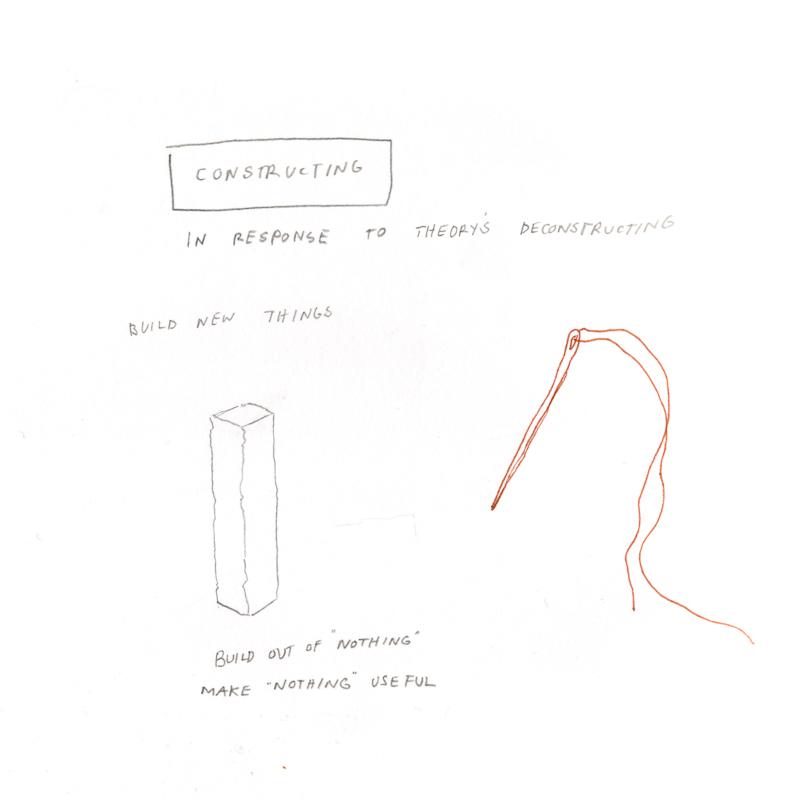 CONSTRUCTING
IN RESPONSE TO THEORY'S DECONSTRUCTING
BUILD NEW THINGS
BUILD OUT OF "NOTHING"
MAKE "NOTHING" USEFUL